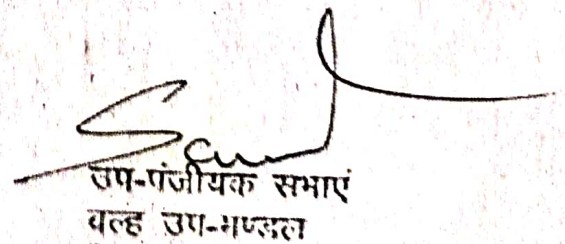 उप-पंजीयक सभाएं
वल्ह उप-मण्डल